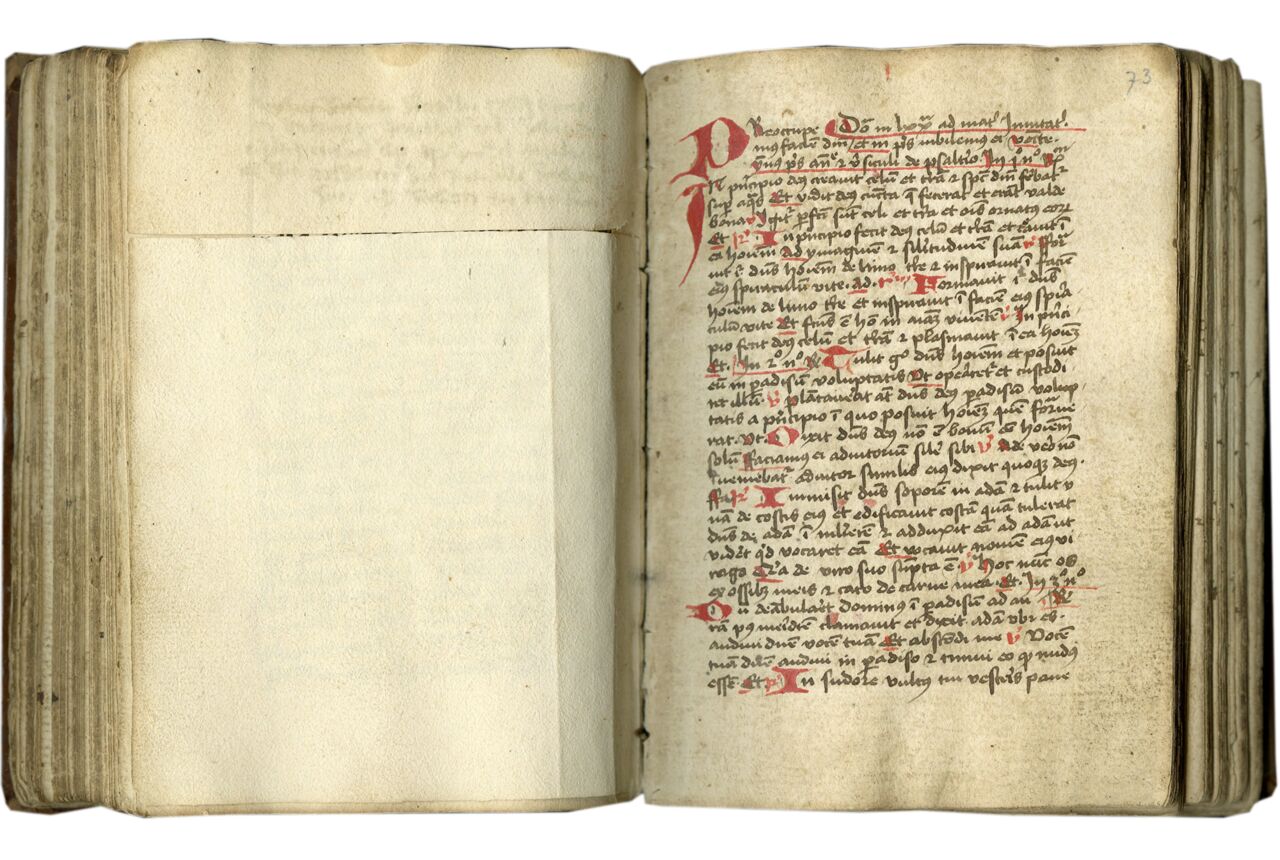 73
Reocupe Do͞ in lxx͞ ad mat' Inuitat'
mus facie͞ dn͞i et in p̄s iubilemus ei vȇite
p̄s an͞ꝫ ⁊ v̓siculi de psaltȩ̓io In p̓ n̊
IN pn̓cipio deꝰ creauit celu͞ et t̓ra͞ ⁊ sp͞c dn͞i fe̓bat̓
sup̱ aq̓s Et vidit deꝰ cu͞cta q̄ fecerat et era͞t valde
bona v̓ Igit̓ p̱fc̄i su͞t celi et t̓ra et oi͞s ornatꝰ eoꝝ
Et R̓ In pn̓cipio fecit deꝰ celu͞ et t̓ra͞ et c̓auit ī
ea ho͞iem Ad ymagine͞ ⁊ si͞litudine͞ sua͞ v̓ Form̓
uit i͛ du͞s ho͞iem de limo t̓re ⁊ inspirauit ī facie͞
eiꝰ spiraculu͞ vite. ad. R̓ Formauit i͛ du͞s
ho͞iem de limo t̓re et inspirauit ī facie͞ eiꝰ sp̓ra
culu͞ vite Et fc̄us ē ho͞ in ai͞aꝫ viuente͞ v̓ In pn̓ci
pio fecit deꝰ celu͞ et t̓ra͞ ⁊ plasmauit ī ea ho͞ieꝫ
Et. In 2̊ n̊ R̓ Tulit gͦ du͞s ho͞iem et posuit
eu͞ in p̱adisu͞ voluptatis Vt opearet̓ et custodi
ret illu͞. v̓ plantau̓at at̄ du͞s deꝰ p̱adisu͞ volup
tatis a pn̓cipio ī quo posuit ho͞ieꝫ que͞ form̓e
rat. Vt. Dixit du͞s deꝰ no͞ ē bonu͞ ēe ho͞iem
solu͞ Faciamus ei adiutoriu͞ si͞le sibi v̓ Ade ve̓o no͞
Iueniebat̓ adiutor similis eiꝰ dixit quoqꝫ deꝰ.
Fa R̓ Inmisit du͞s sopore͞ in ada͞ ⁊ tulit v
na͞ de costis eiꝰ et edificauit costa͞ qua͞ tulerat
du͞s de ada͞ ī mulie̓re͞ ⁊ adduxit ea͞ ad ada͞ ut
vide̓t q̓d vocaret ea͞ Et vocauit nomē eiꝰ vi
rago Q̓a de viro suo su͞pta ē v̓ hoc nu͞c os
ex ossibꝫ meis ⁊ caro de carne mea. Et. In 3̊ n̊
Du͞ dea͞bulare̓t dominus ī p̱adisu͞ ad au R̓
ra͞ pꝰ meidie͞ clamauit et dixit. ada͞ vbi es.
audiui d͞ne voce͞ tua͞ Et absco͞di me v̓ Voce͞
tua͞ dn͞e audiui in p̱adiso ⁊ timui eo qꝫ nudus
esse͞. Et R̓ In sudore vultꝰ tui vesce̓ris pane